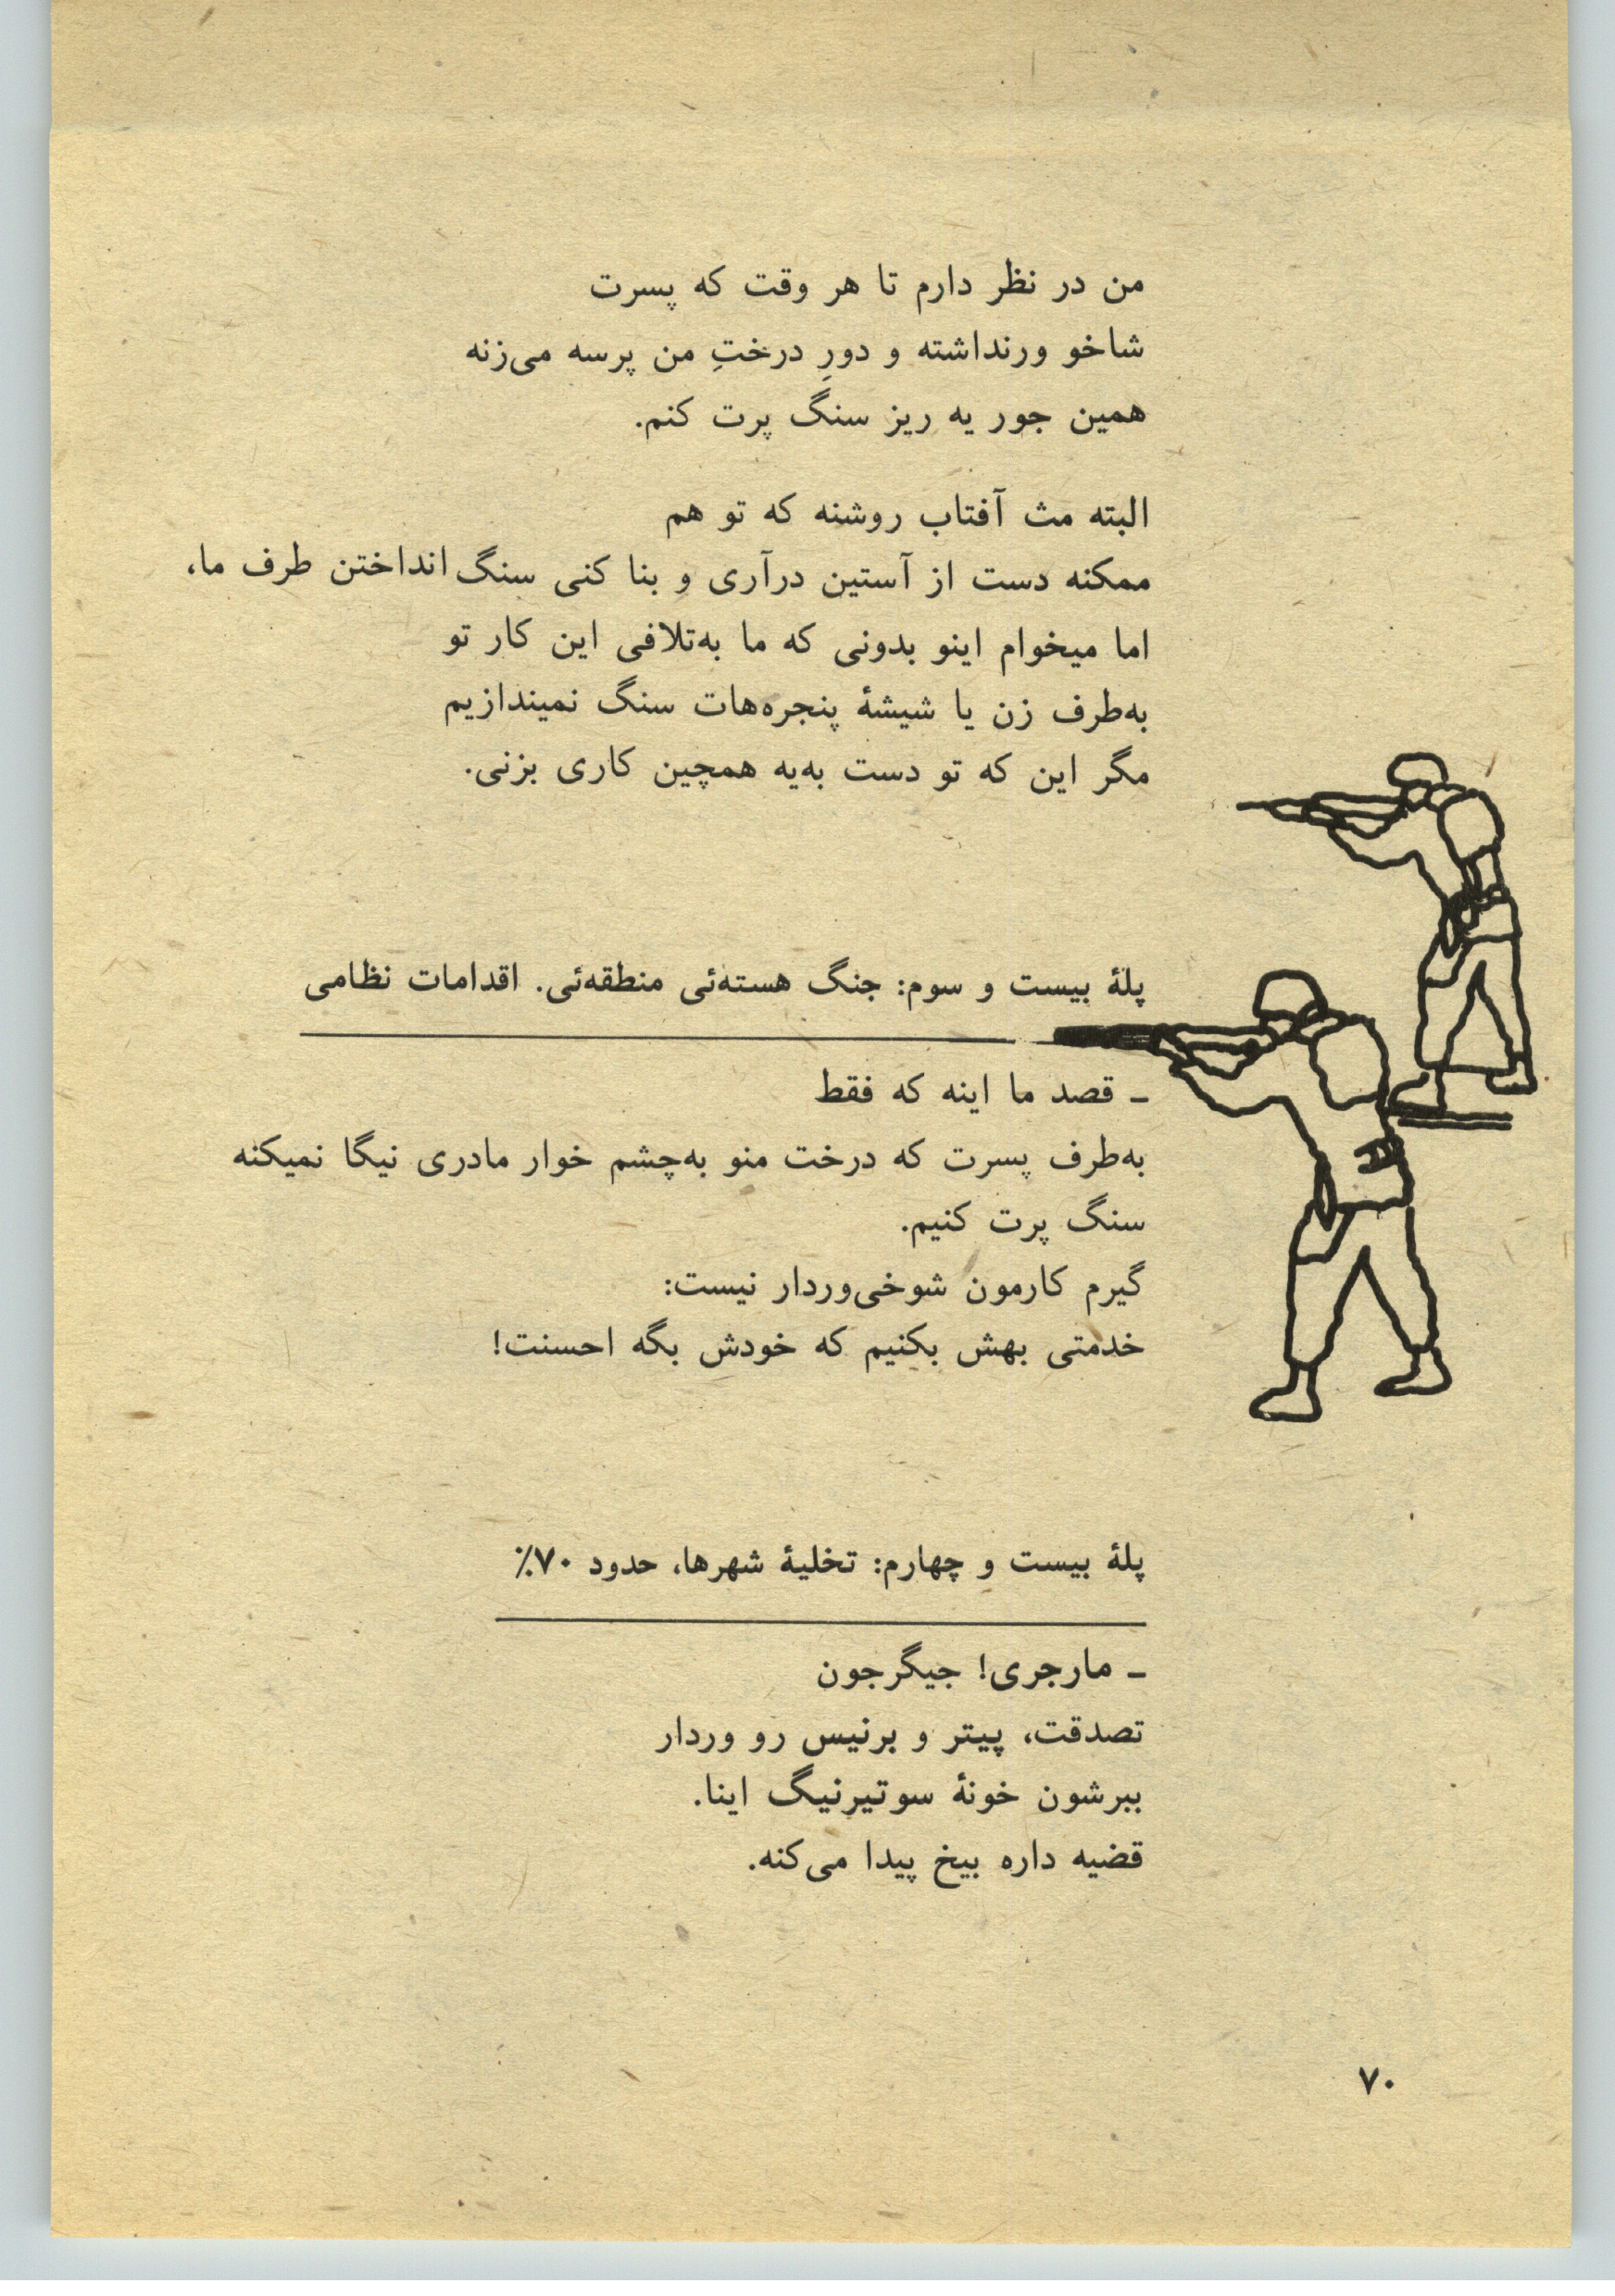 من در نظر دارم تا هر وقت که پسرت
شاخو ورنداشته و دورِ درختِ من پرسه می‌زنه
همین جور یه ریز سنگ پرت کنم.
البته مث آفتاب روشنه که تو هم
ممکنه دست از آستین درآری و بنا کنی سنگ انداختن طرف ما،
اما میخوام اینو بدونی که ما به‌تلافی این کار تو
به‌طرف زن یا شیشهٔ پنجره‌هات سنگ نمیندازیم
مگر این که تو دست به‌یه همچین کاری بزنی.
پلهٔ بیست و سوم: جنگ هسته‌ئی منطقه‌ئی. اقدامات نظامی
ـ قصد ما اینه که فقط
به‌طرف پسرت که درخت منو به‌چشم خوار مادری نیگا نمیکنه
سنگ پرت کنیم.
گیرم کارمون شوخی‌وردار نیست:
خدمتی بهش بکنیم که خودش بگه احسنت!
پلهٔ بیست و چهارم: تخلیهٔ شهرها، حدود ۷۰٪
ـ مارجری! جیگرجون
تصدقت، پیتر و برنیس رو وردار
ببرشون خونهٔ سوتیرنیگ اینا.
قضیه داره بیخ پیدا می‌کنه.
۷۰